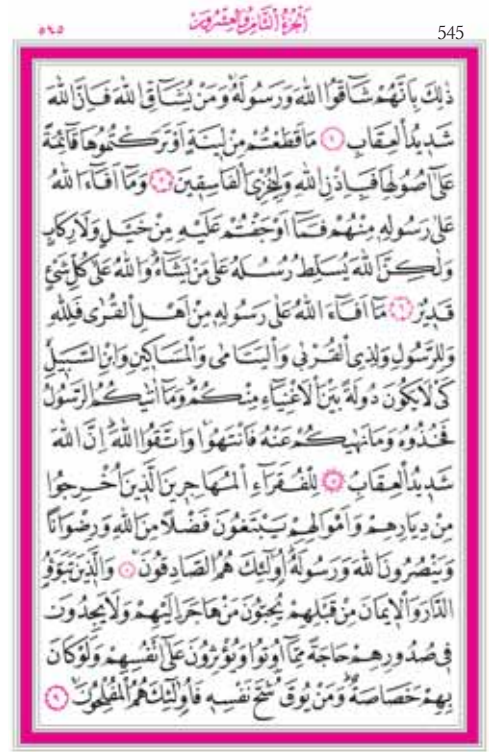 ٥٤٥ اَلْجُزْءُ الثَّامِنُ وَالْعِشْرُونَ 545
ذٰلِكَ بِاَنَّهُمْ شَٓاقُّوا اللّٰهَ وَرَسُولَهُۚ وَمَنْ يُشَٓاقِّ اللّٰهَ فَاِنَّ اللّٰهَ
شَد۪يدُ الْعِقَابِ ﴿٤﴾ مَا قَطَعْتُمْ مِنْ ل۪ينَةٍ اَوْ تَرَكْتُمُوهَا قَٓائِمَةً
عَلٰٓى اُصُولِهَا فَبِاِذْنِ اللّٰهِ وَلِيُخْزِيَ الْفَاسِق۪ينَ ﴿٥﴾ وَمَٓا اَفَٓاءَ اللّٰهُ
عَلٰى رَسُولِه۪ مِنْهُمْ فَمَٓا اَوْجَفْتُمْ عَلَيْهِ مِنْ خَيْلٍ وَلَا رِكَابٍ
وَلٰكِنَّ اللّٰهَ يُسَلِّطُ رُسُلَهُ عَلٰى مَنْ يَشَٓاءُۜ وَاللّٰهُ عَلٰى كُلِّ شَيْءٍ
قَد۪يرٌ ﴿٦﴾ مَٓا اَفَٓاءَ اللّٰهُ عَلٰى رَسُولِه۪ مِنْ اَهْلِ الْقُرٰى فَلِلّٰهِ
وَلِلرَّسُولِ وَلِذِي الْقُرْبٰى وَالْيَتَامٰى وَالْمَسَاك۪ينِ وَابْنِ السَّب۪يلِۙ
كَيْ لَا يَكُونَ دُولَةً بَيْنَ الْاَغْنِيَٓاءِ مِنْكُمْۜ وَمَٓا اٰتٰيكُمُ الرَّسُولُ
فَخُذُوهُ وَمَا نَهٰيكُمْ عَنْهُ فَانْتَهُواۚ وَاتَّقُوا اللّٰهَۜ اِنَّ اللّٰهَ
شَد۪يدُ الْعِقَابِۢ ﴿٧﴾ لِلْفُقَرَٓاءِ الْمُهَاجِر۪ينَ الَّذ۪ينَ اُخْرِجُوا
مِنْ دِيَارِهِمْ وَاَمْوَالِهِمْ يَبْتَغُونَ فَضْلًا مِنَ اللّٰهِ وَرِضْوَانًا
وَيَنْصُرُونَ اللّٰهَ وَرَسُولَهُۜ اُو۬لٰٓئِكَ هُمُ الصَّادِقُونَۚ ﴿٨﴾ وَالَّذ۪ينَ تَبَوَّؤُ
الدَّارَ وَالْا۪يمَانَ مِنْ قَبْلِهِمْ يُحِبُّونَ مَنْ هَاجَرَ اِلَيْهِمْ وَلَا يَجِدُونَ
ف۪ي صُدُورِهِمْ حَاجَةً مِمَّٓا اُو۫تُوا وَيُؤْثِرُونَ عَلٰٓى اَنْفُسِهِمْ وَلَوْ كَانَ
بِهِمْ خَصَاصَةٌۜ وَمَنْ يُوقَ شُحَّ نَفْسِه۪ فَاُو۬لٰٓئِكَ هُمُ الْمُفْلِحُونَۚ ﴿٩﴾